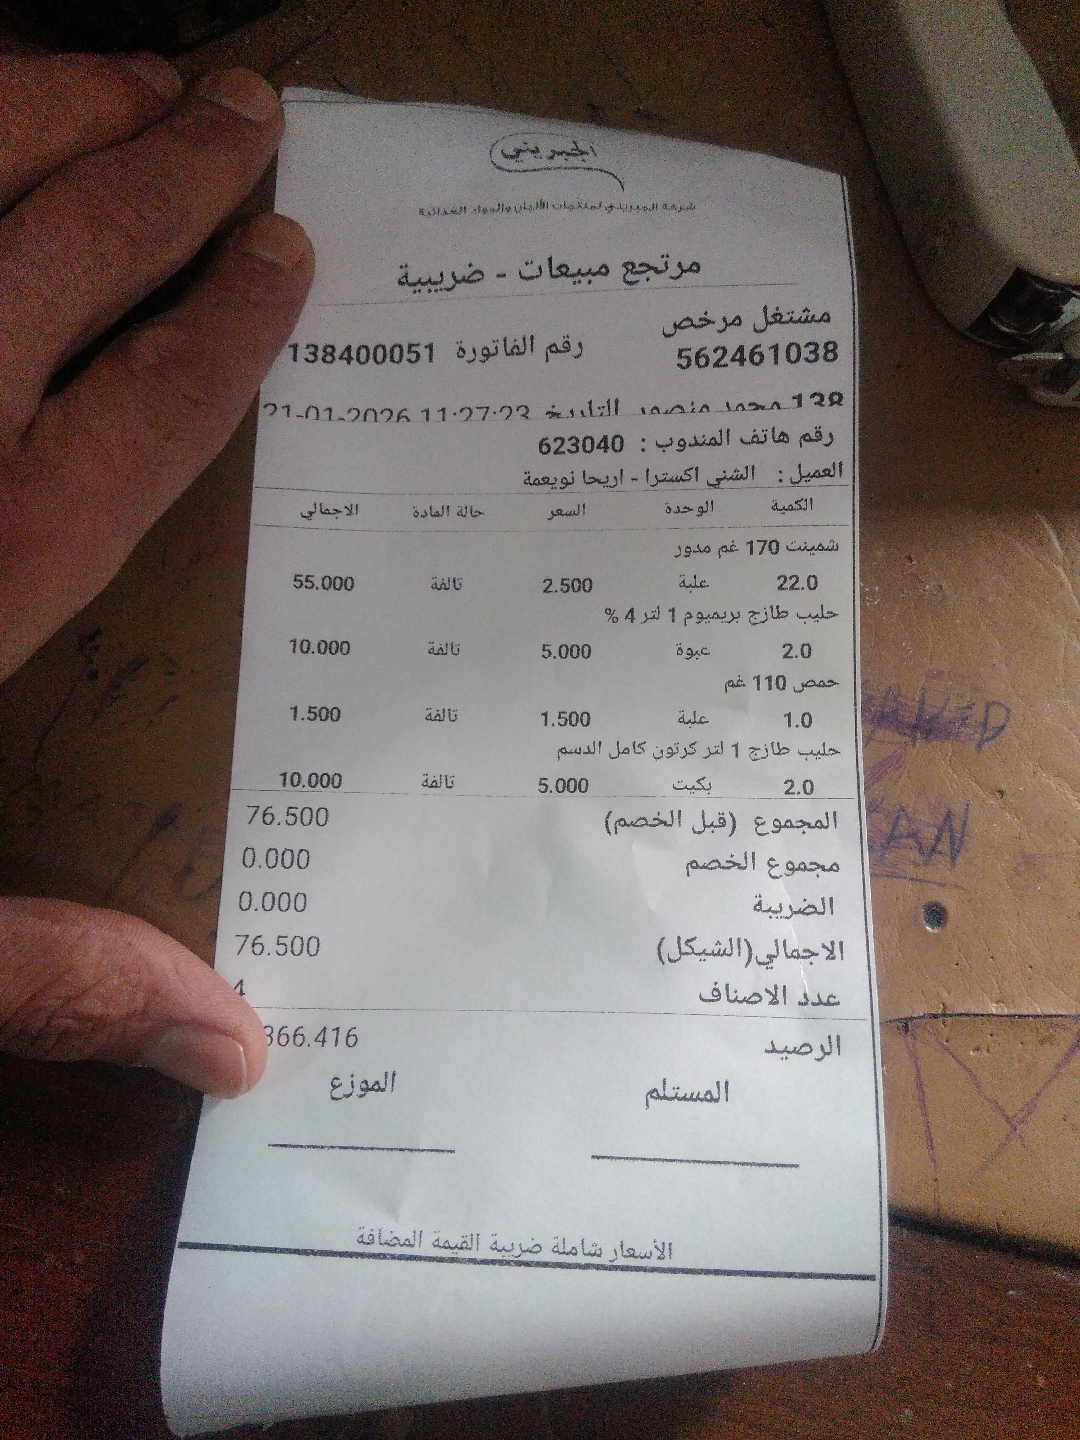 الجبريني
شركة الجبريني لمنتجات الألبان والمواد الغذائية
مرتجع مبيعات - ضريبية
مشتغل مرخص
562461038 رقم الفاتورة 138400051
138 محمد منصور التاريخ 21-01-2026 11:27:23
رقم هاتف المندوب : 623040
العميل : الشني اكسترا - اريحا نويعمة
الكمية الوحدة السعر حالة المادة الاجمالي
شمينت 170 غم مدور
22.0 علبة 2.500 تالفة 55.000
حليب طازج بريميوم 1 لتر 4 %
2.0 عبوة 5.000 تالفة 10.000
حمص 110 غم
1.0 علبة 1.500 تالفة 1.500
حليب طازج 1 لتر كرتون كامل الدسم
2.0 بكيت 5.000 تالفة 10.000
المجموع (قبل الخصم) 76.500
مجموع الخصم 0.000
الضريبة 0.000
الاجمالي(الشيكل) 76.500
عدد الاصناف 4
الرصيد 366.416
المستلم الموزع
الأسعار شاملة ضريبة القيمة المضافة